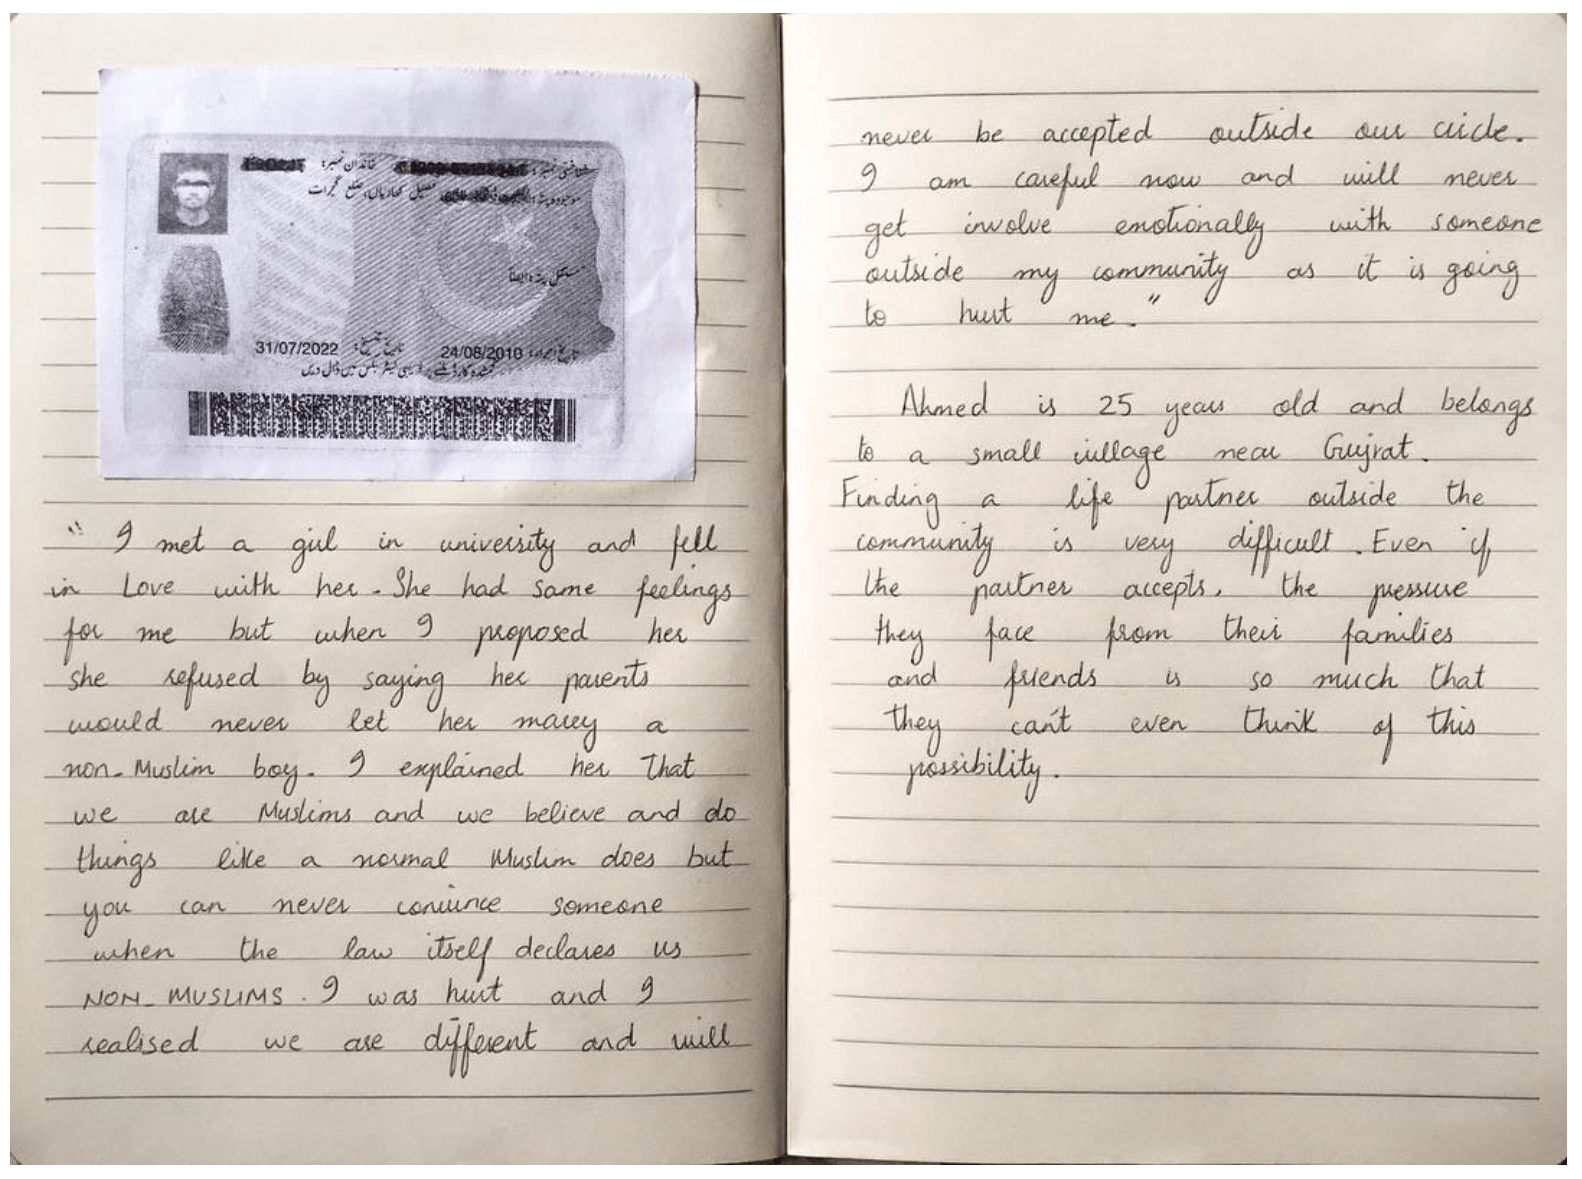 شناختی نمبر: خاندان نمبر:
موجودہ پتہ: تحصیل کھاریاں، ضلع گجرات
مستقل پتہ: ایضاً
تاریخ اجراء: 24/08/2010 تاریخ تنسیخ: 31/07/2022
گمشدہ کارڈ ملنے پر قریبی لیٹر بکس میں ڈال دیں
" I met a girl in university and fell
in Love with her. She had same feelings
for me but when I proposed her
she refused by saying her parents
would never let her marry a
non-Muslim boy. I explained her that
we are Muslims and we believe and do
things like a normal Muslim does but
you can never convince someone
when the law itself declares us
NON-MUSLIMS. I was hurt and I
realised we are different and will
never be accepted outside our circle.
I am careful now and will never
get involve emotionally with someone
outside my community as it is going
to hurt me."
Ahmed is 25 years old and belongs
to a small village near Gujrat.
Finding a life partner outside the
community is very difficult. Even if
the partner accepts, the pressure
they face from their families
and friends is so much that
they can't even think of this
possibility.